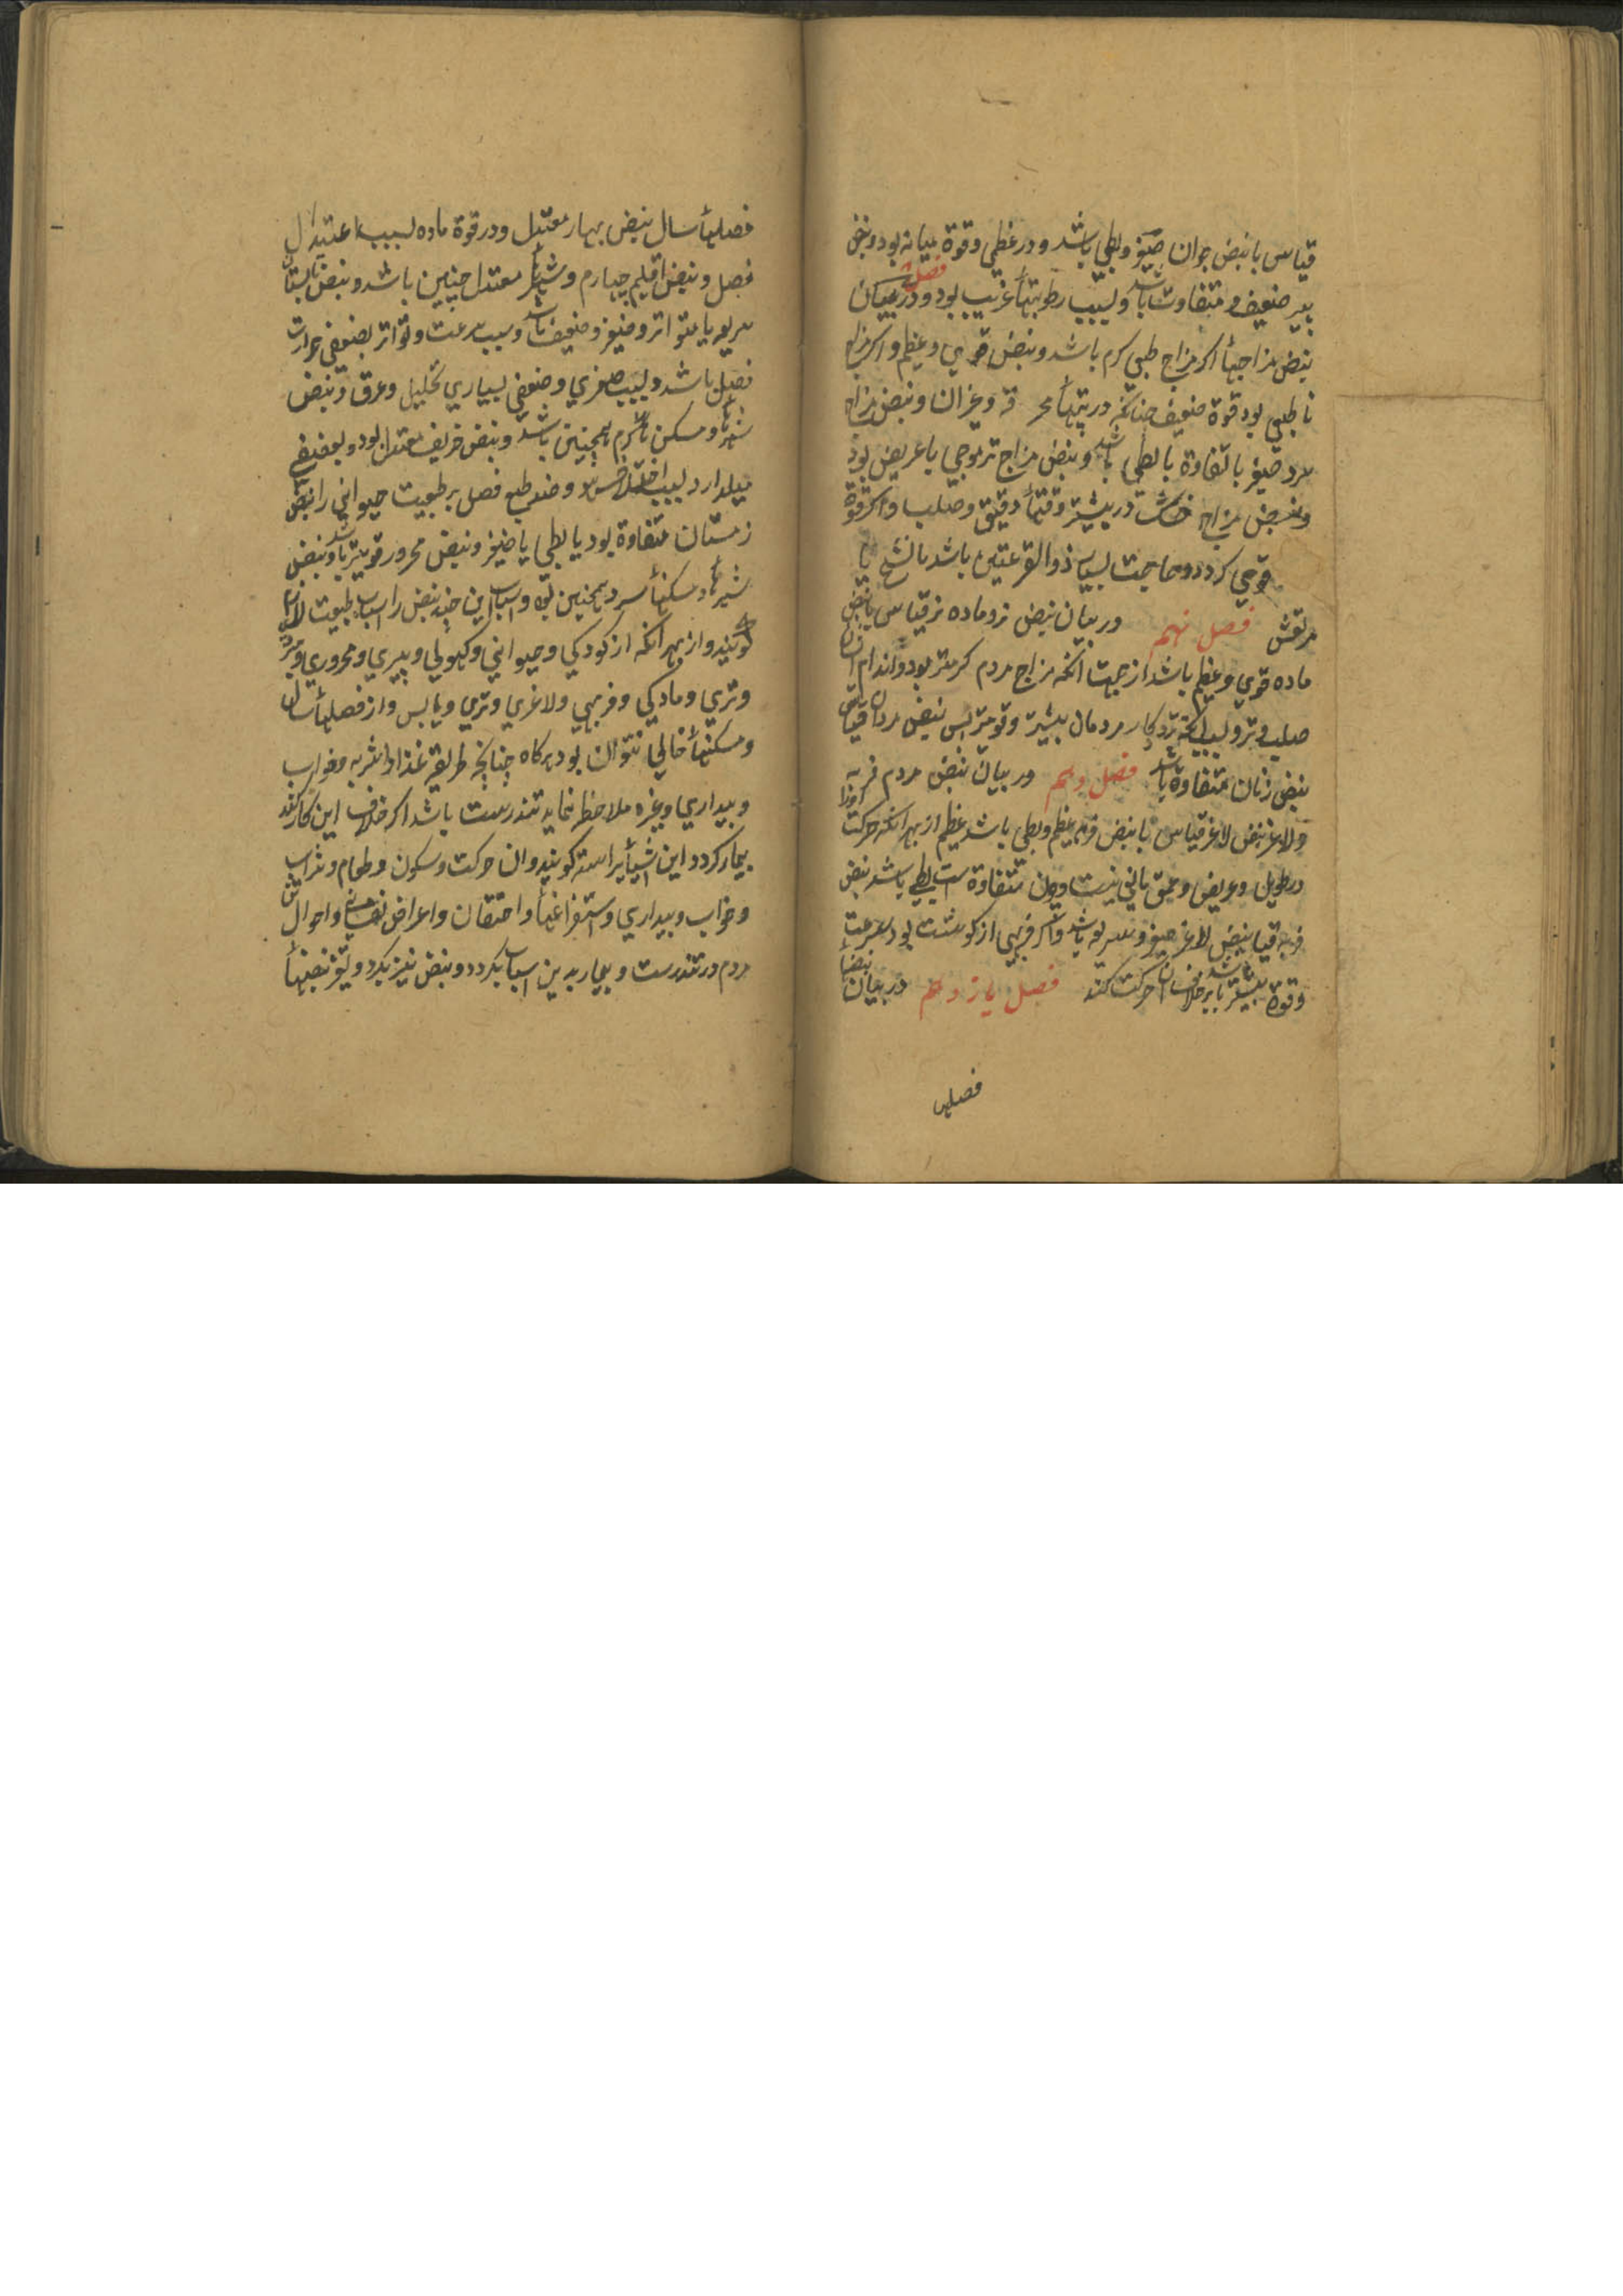 قیاس با نبض جوان صغیر و بطی باشد و در عظمی و قوة میانه بود و نبض
پیر ضعیف و متفاوت باشد و بسبب رطوبتهأ غریب بود و در بیان
فصل
نبض مزاجهأ اکر مزاج طبی کرم باشد و نبض قوی و عظیم و اکر مزاج
نا طبی بود قوة ضعیف چنانکه در تبهأ محرقه و غیر آن و نبض مزاج
سرد صغیر با تفاوة با بطی باشد و نبض مزاج تر موجی با عریض بود
و نبض مزاج خشک در بیشتر وقتهأ دقیق و صلب و اکر قوة
قوی کردد و حاجت بسیار ذو القرعتین باشد با تشنج یا
مرتعش فصل نهم در بیان نبض نر و ماده نر قیاس با نبض
ماده قوی و عظیم باشد از جهت آنکه مزاج مردم کرمتر بود و اندام آن
صلب و تر و بسبب آنکه تزد کار مردمان بیشتر و قویتر پس نبض مردان قیاس
نبض زنان متفاوة باشد فصل دهم در بیان نبض مردم فربه
و لاغر نبض لاغر قیاس با نبض فربه عظیم و بطی باشد عظیم از بهر آنکه حرکت او را
در طویل و عریض و عمیق مانی نیست و چون متفاوة است بطی باشد نبض
فربه قیاس نبض لاغر صغیر و سریع باشد و اکر فربهی از کوشت بود سرعت
و قوة بیشتر باشد بر خلاف آن حرکت کند فصل یازدهم در بیان نبضهأ
فصلهأ
فصلهأ سال نبض بهار معتدل و در قوة ماده بسبب اعتدال
فصل و نبض اقلیم چهارم و شهرهأ معتدل چنین باشد و نبض تابستان
سریع یا متواتر و صغیر و ضعیف باشد و سبب سرعت و تواتر بضعفی حرارت
فصل باشد و بسبب صغری و ضعفی بسیاری تحلیل و عرق و نبض
شهرهأ و مسکن هأ کرم همچنین باشد و نبض خریف معتدل بود و بضعیفی
میل دارد بسبب اختلافش و ضد طبع فصل بر طبیعت حیوانی را نبض
زمستان متفاوة بود یا بطی یا صغیر و نبض محرور قویتر باشد و نبض
شهرهأ و مسکنهأ سرد همچنین بود و اسباب این چند نبض را اسباب طبیعت لازم
کویند و از بهر آنکه از کودکی و حیوانی و کهولی و پیری و محروری و مبرودی
و تری و مادکی و فربهی و لاغری و تری و یابس و از فصلهأ سال
و مسکنهأ خالی نتوان بود هرکاه چنانکه طریقه غذا و اشربه و خواب
و بیداری و غیره ملاحظه نماید تندرست باشد اکر خلاف این کار کند
بیمار کردد این اشیأ را سته کویند و ان حرکت و سکون و طعام و شراب
و خواب و بیداری و استفراغهأ و احتقان و اعراض نفسانی و احوال تن
مردم در تندرست و بیمار بدین اسباب بکردد و نبض نیز بکردد و تغیر نبضهأ